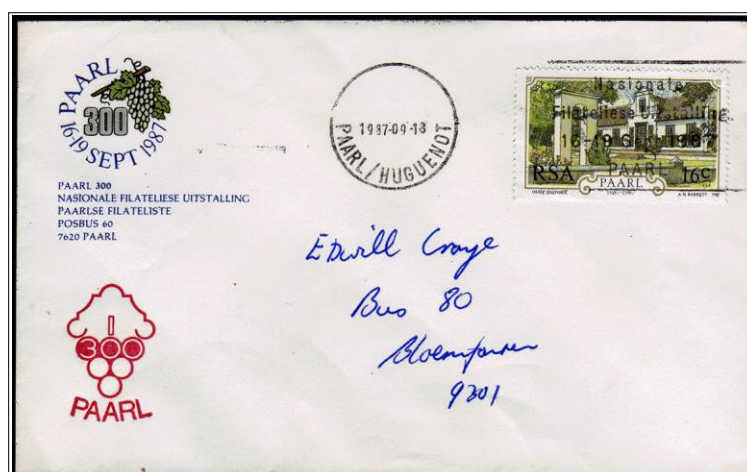 PAARL
300
16-19 SEPT 1987
PAARL 300
NASIONALE FILATELIESE UITSTALLING
PAARLSE FILATELISTE
POSBUS 60
7620 PAARL
1987-09-18
PAARL/HUGUENOT
Nasionale
Filateliese Uitstalling
16-19 Sept 1987
PAARL
RSA
PAARL
1687-1987
16c
A H BARRETT
Bus 80
9301
300
PAARL